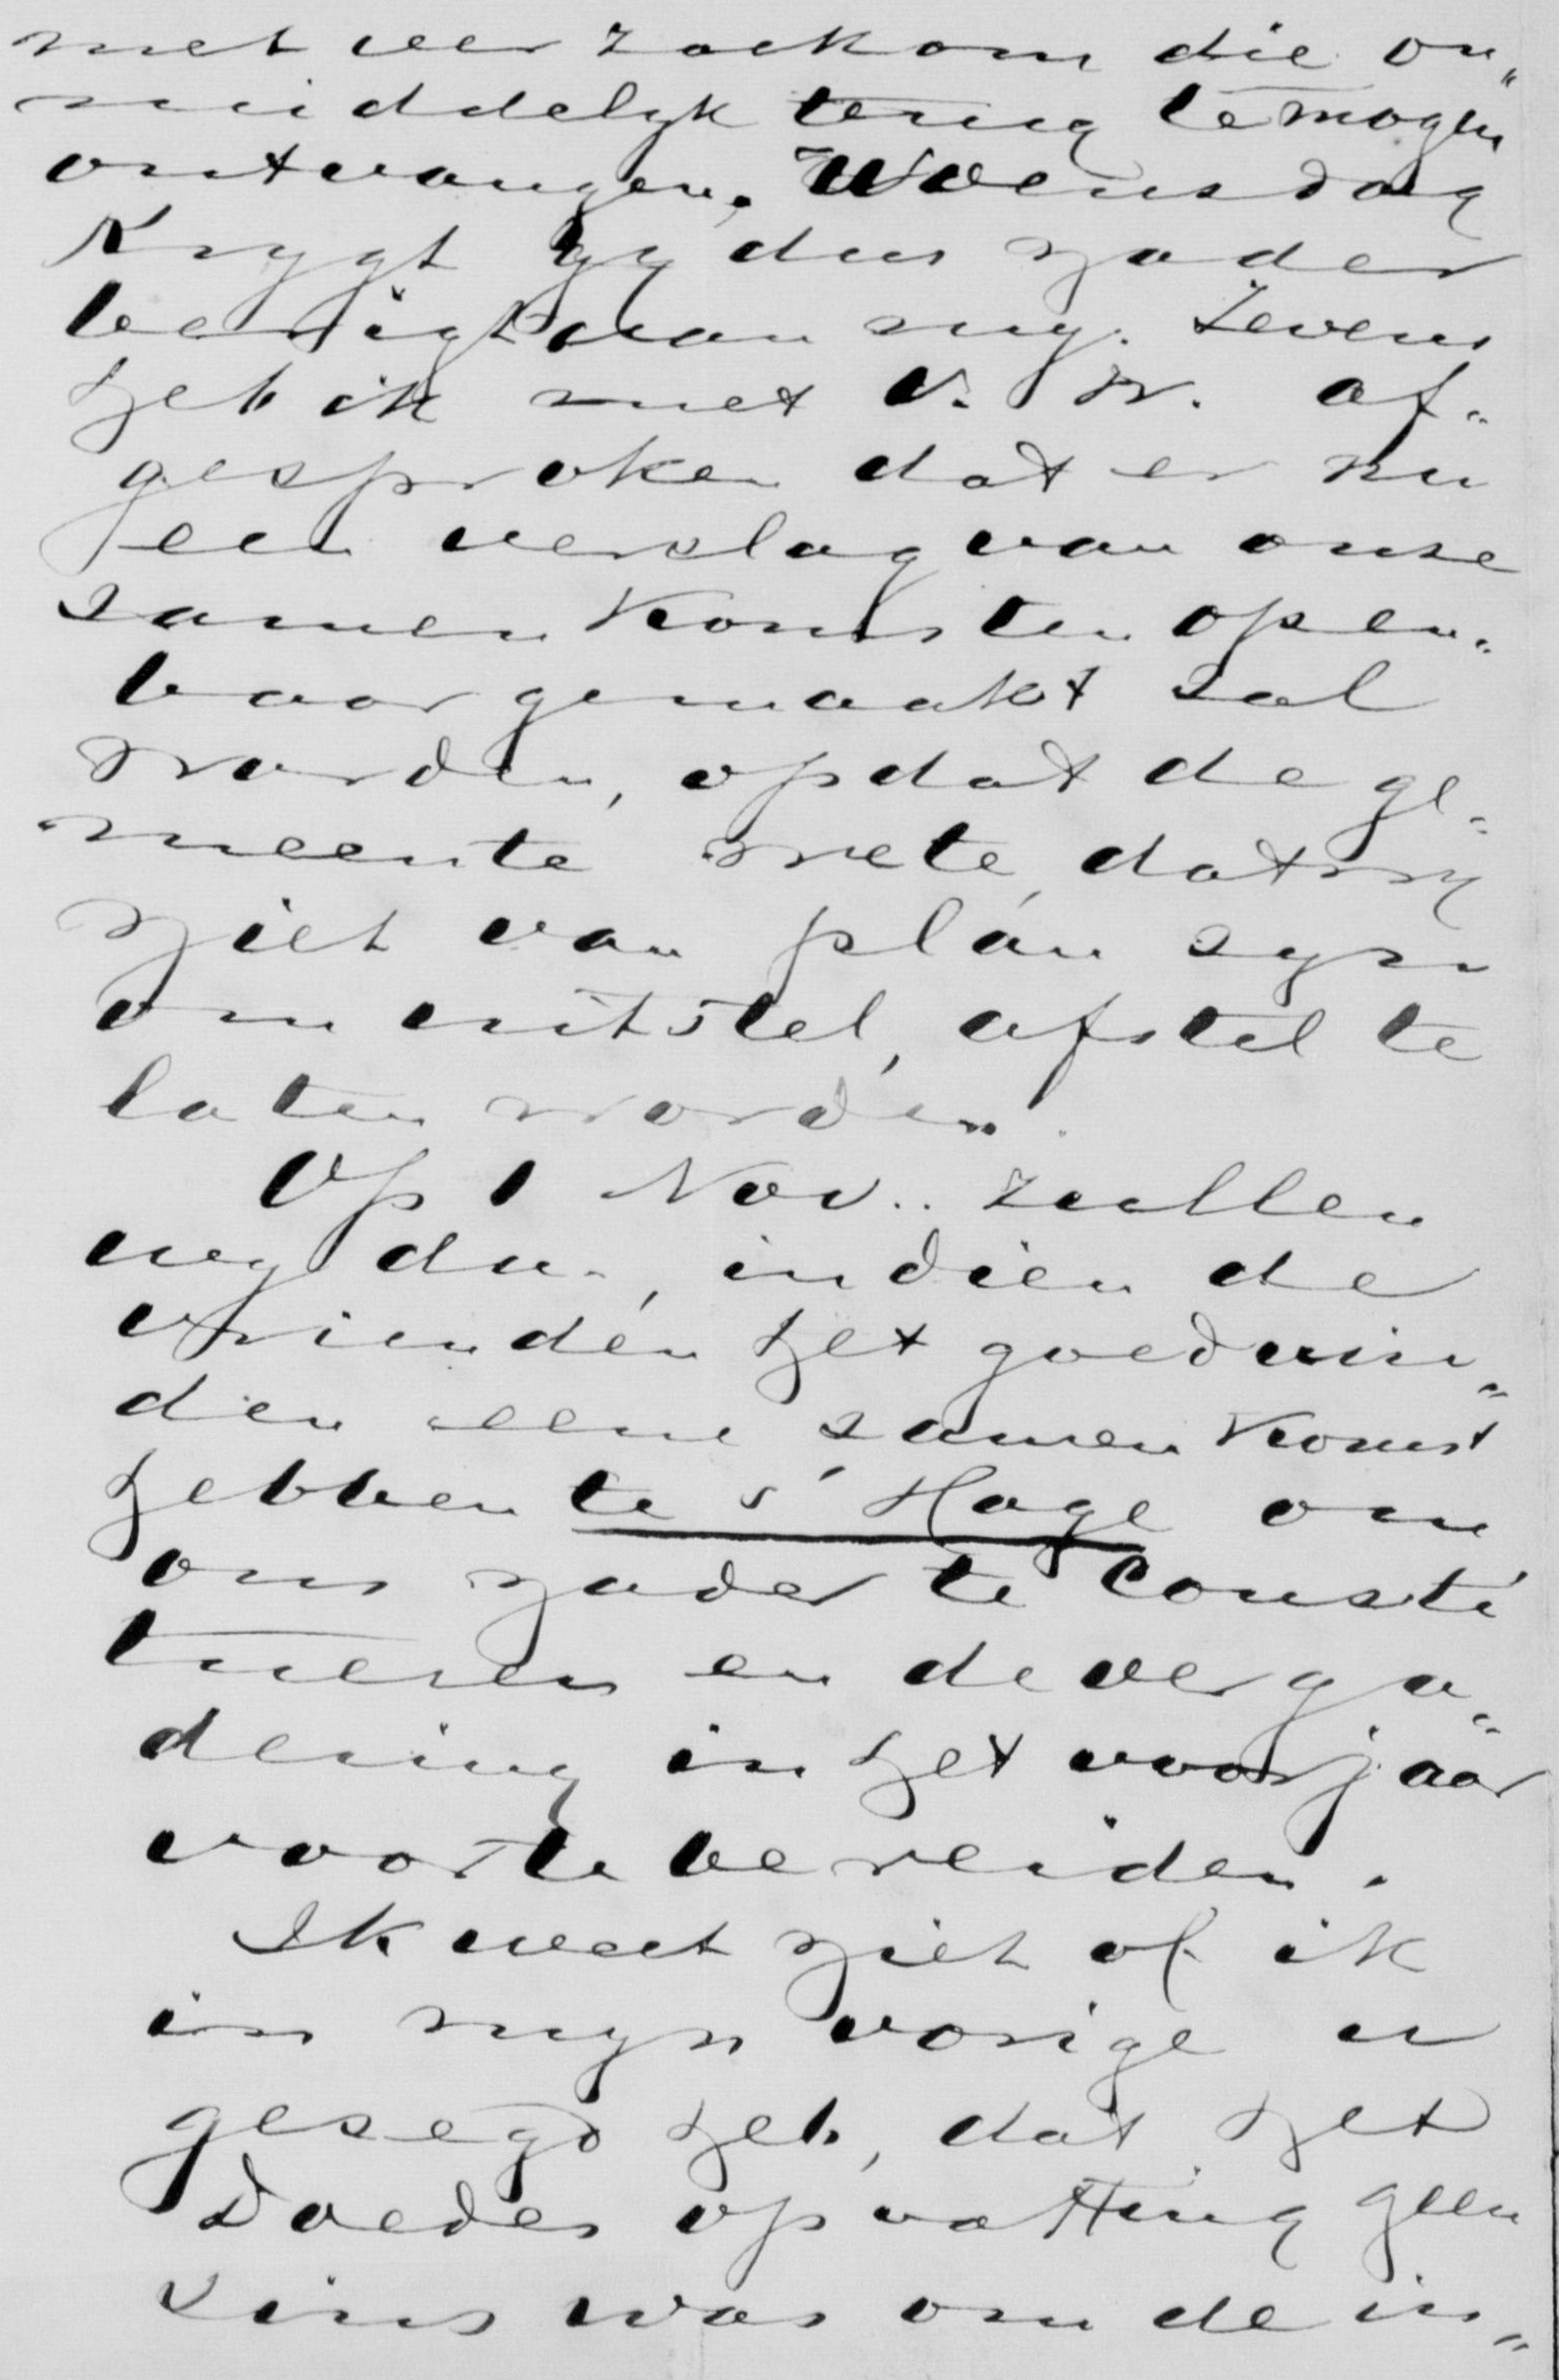 met verzoek om die on„
middelyk terug te mogen
ontvangen. Woensdag
Krygt gy dus nader
berigt van my. Tevens
heb ik met v. W. af„
gesproken dat er nu
een verslag van onse
samenkomsten open„
baar gemaakt sal
worden, opdat de ge„
meente wete, dat wy
niet van plan syn
om uitstel, afstel te
laten worden.
Op 1 Nov. zullen
wy dus, indien de
vrienden het goedvin„
den eene samenkomst
hebben te s' Hage om
ons nader te consti
tueren en de verga„
dering in het voorjaar
voortebereiden.
Ik weet niet of ik
in myn vorige u
gesegd heb, dat het
Doedes opvatting geen
sins was om de in„